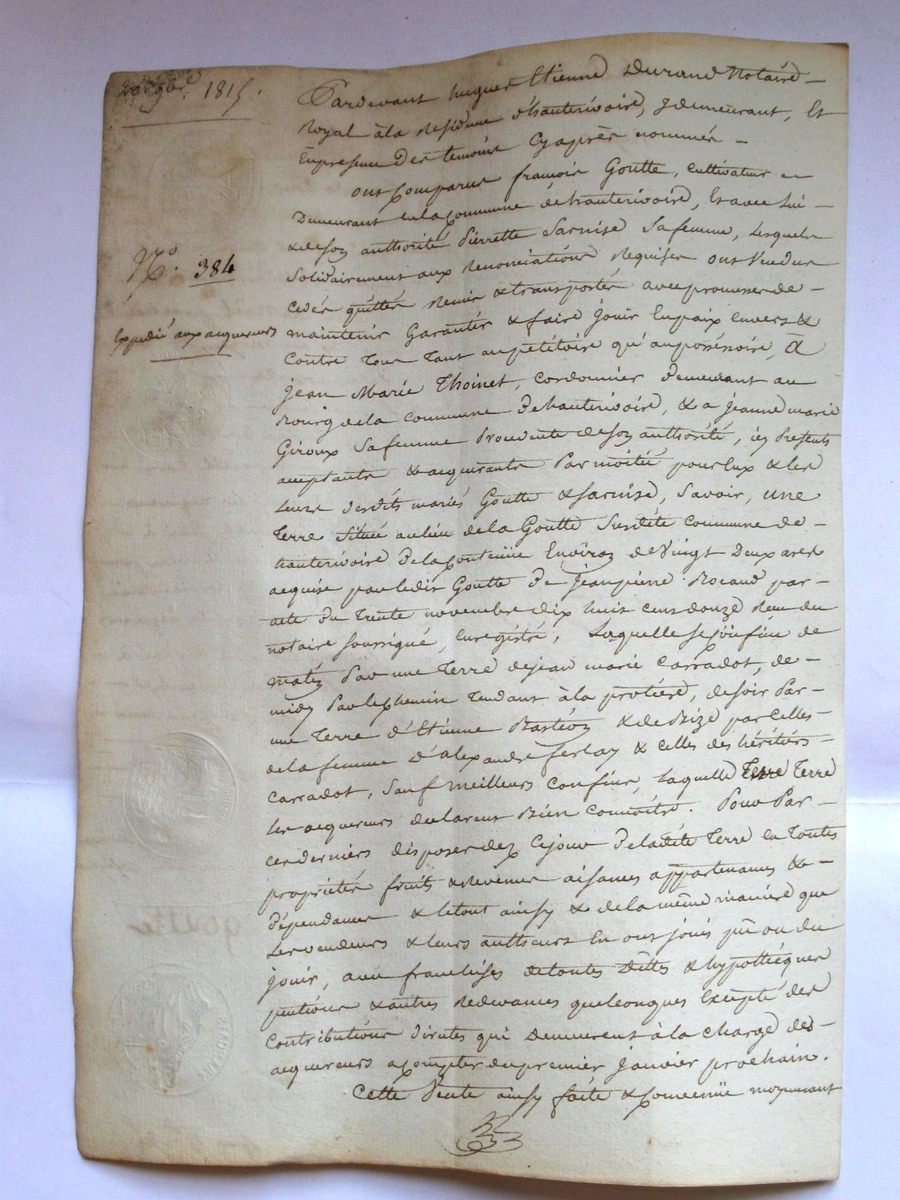 9bre 1815.
N.° 384
Expedié aux acquereurs
Pardevant hugues Etienne Durand Notaire
Royal à la Residence d'hauterivoire, y demeurant, Et
En presence Des temoins Cy après nommés
ont Comparus françois Goutte, cultivateur
Demeurant en la Commune de hauterivoire, Et avec Lui
& de Son authorité Pierrette Sarnise Sa femme, Lesquels
Solidairement aux Renonciations Requises ont Vendus
cedés quittés Remis & transportés avec promesses de
maintenir Garantir & faire Jouir En paix envers &
Contre Tous Tant au petitoire qu'au posséssoire, A
Jean Marie Thoinet, cordonnier Demeurant au
Bourg de la Commune De hauterivoire, & a jeanne marie
Giroux Sa femme Procedente de Son authorité, icy Presents
acceptants & acquerants Par moitié pour Eux & les
Leurs desdits mariés Goutte & Sarnise, Savoir, une
Terre Située au lieu de la Goutte Susdite Commune de
hauterivoire De la Contenüe Environ de Vingt Deux ares
acquise par ledit Goutte De Jean pierre Rocand par
acte Du Trente novembre dix huit cent douze Recu du
notaire soussigné, Enregistré, Laquelle Se Joüxfine de
matin Par une Terre de jean marie Carradot, de
midy Par le chemin Tendant à la protiere, de soir Par
une Terre d'Etienne Bastion & de Bize par Celles
de la femme D'alexandre ferlay & celles des héritiers
Carradot, Sauf meilleurs Confins, laquelle Terre
Les acquereurs declarent Bien Connoitre. Pour Par
ces derniers disposer dez Ce jour De la dite Terre en Toutes
proprietés fruits & revenus aisances appartenances &
Dépendances & le tout ainsy & de la même maniere que
Les vendeurs & leurs autheurs En ont jouis pû ou du
jouir, avec franchises de toutes Dêttes & hypothéques
pentions & autres Redevances quelconques Excepté des
Contributions directes qui Demeurent à la charge des
acquereurs a Compter du premier Janvier prochain.
Cette Vente ainsy faite & Convenüe moyennant
goutte